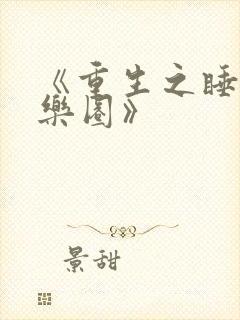 《重生之睡
樂園》
景甜